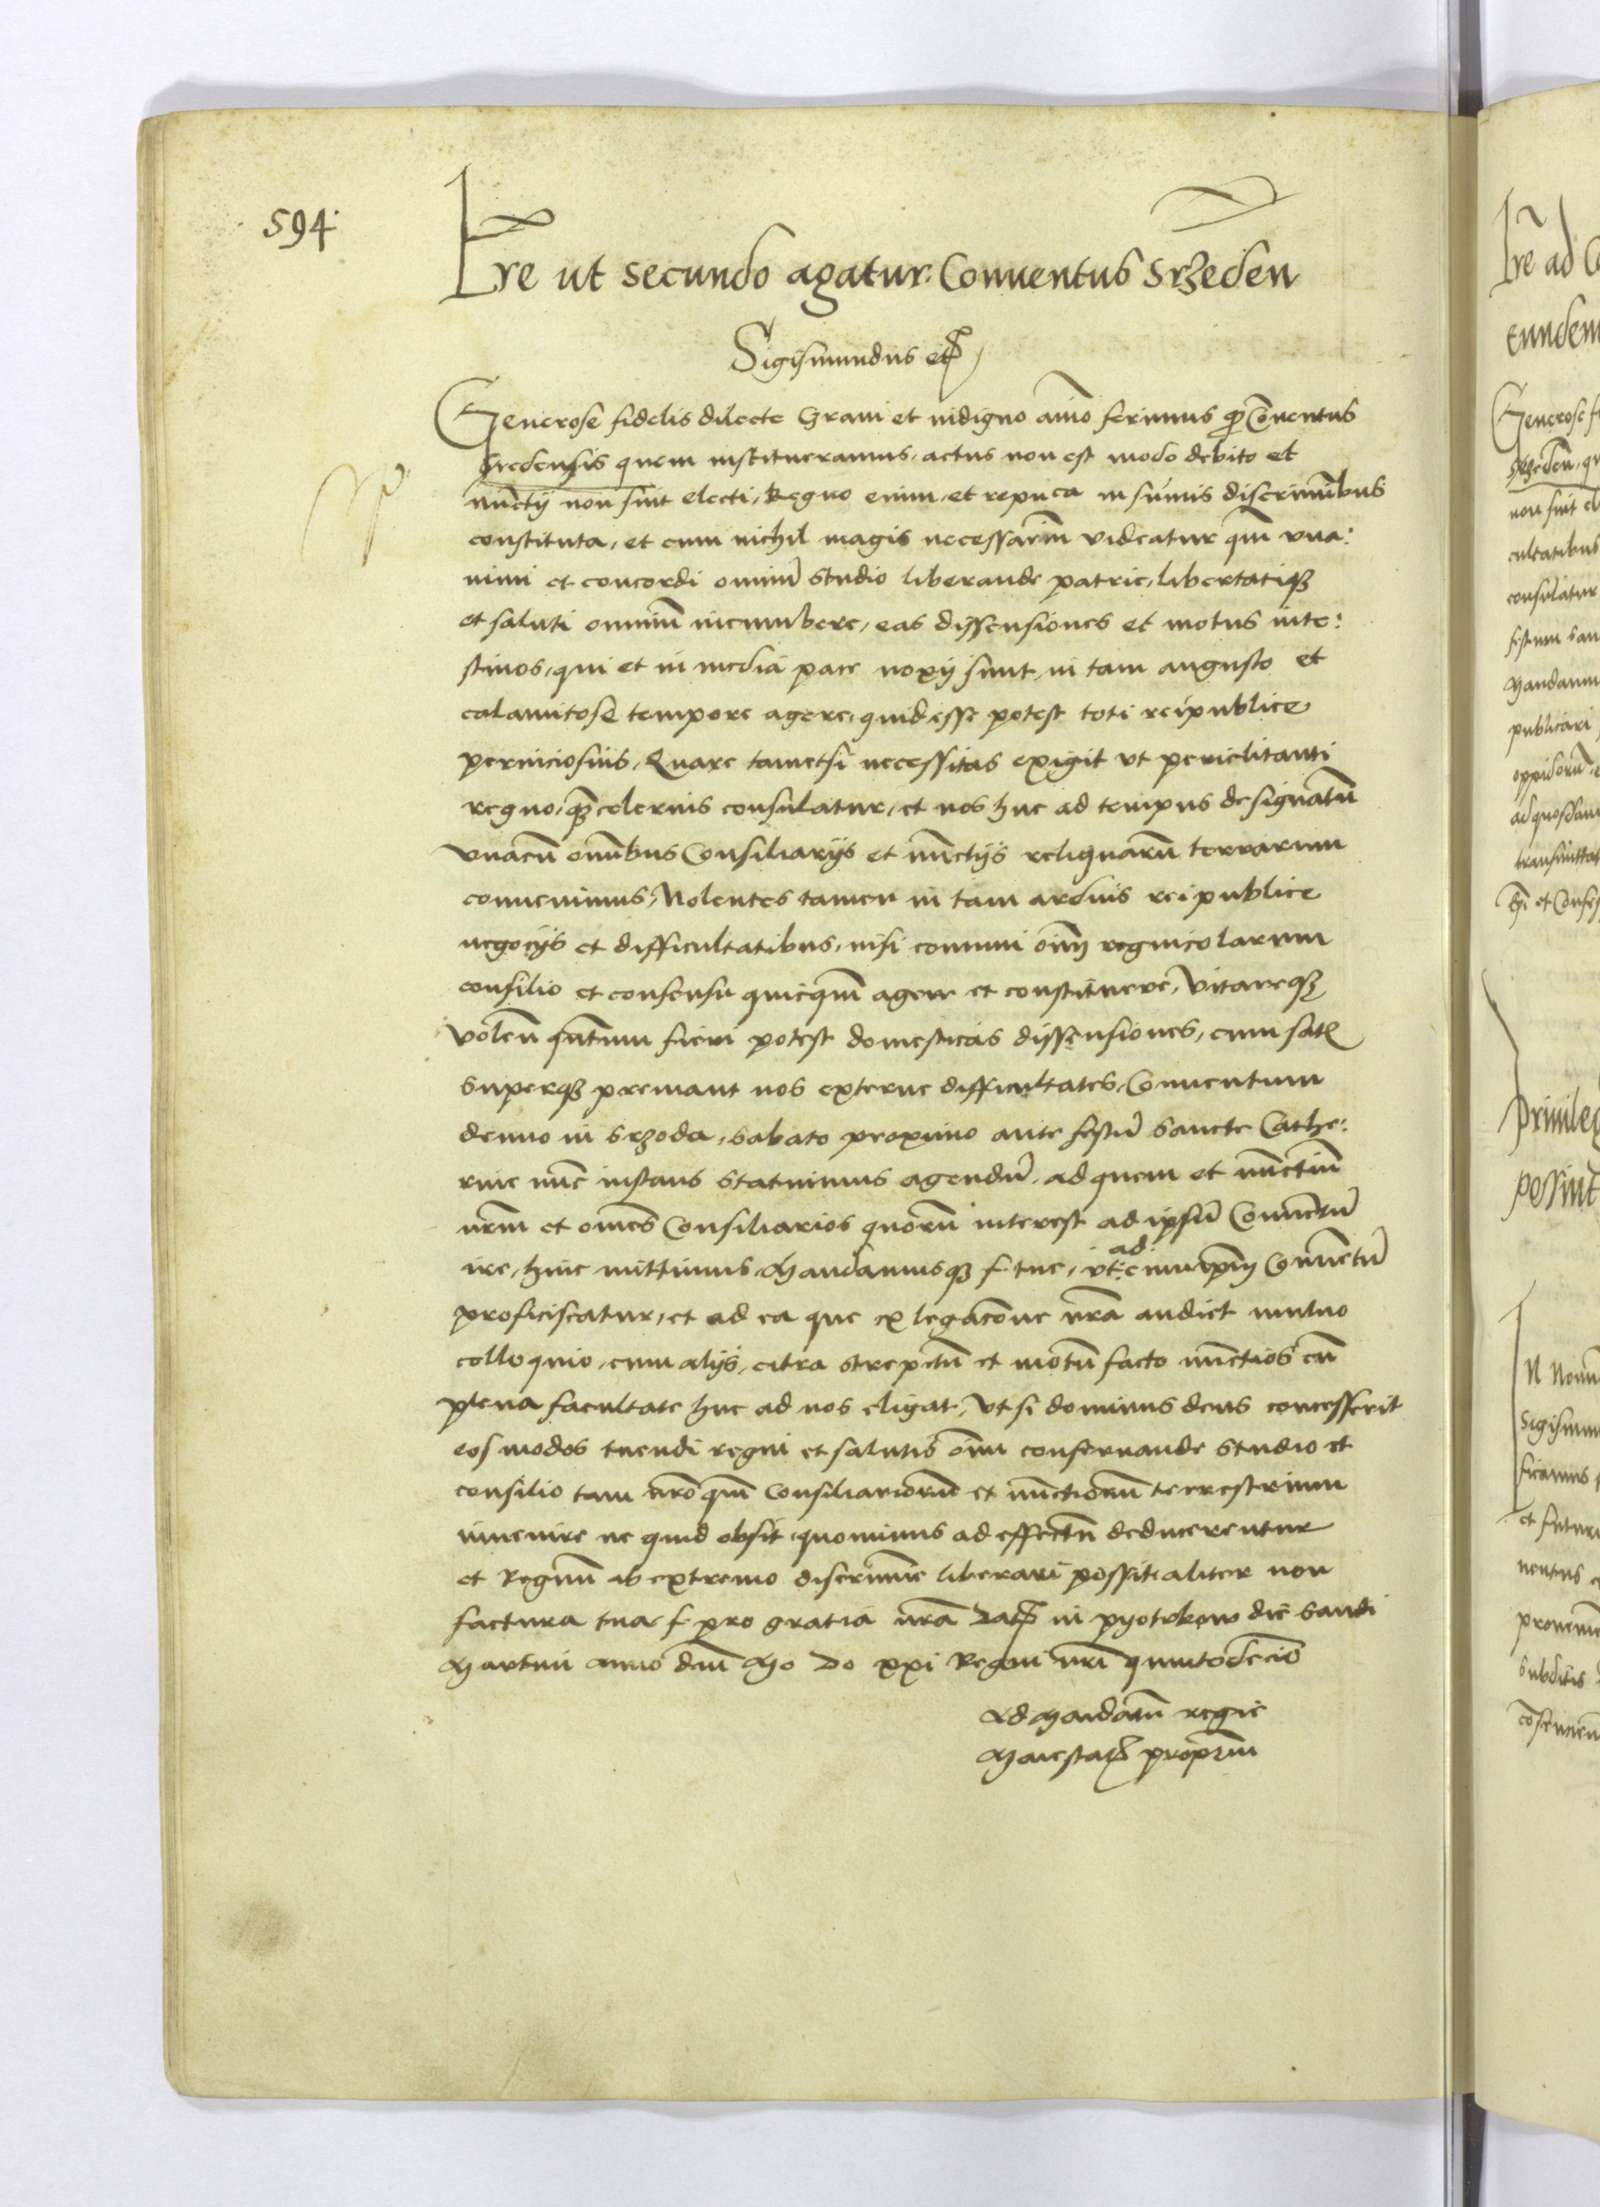 594
Lre ut secundo agatur Conventus Srzeden
Sigismundus etc
Generose fidelis dilecte Gravi et indigno aĩo ferimus ꝙ Cõventus
Sredensis quem institueramus, actus non est modo debito et
nũctij non sint electi, Regno enim, et repuca in sũmis discriminibus
constituta, et cum nichil magis necessariũ videatur qm̃ una:
nimi et concordi omniũ studio liberande patrie, libertatiqꝫ
et saluti omniũ incumbere, eas dissensiones et motus inte:
stinos, qui et in media pace noxij sunt, in tam angusto et
calamitose tempore agere, quid esse potest toti reipublice
perniciosius, Quare tametsi necessitas exigit ut periclitanti
regno, qꝫ celerius consulatur, et nos huc ad tempus designatũ
vnacũ omĩbus Consiliarijs et nũctijs reliquarũ terrarum
convenimus, Nolentes tamen in tam arduis reipublice
negocijs et difficultatibus, nisi comuni oĩm regnicolarum
consilio et consensu quicqm̃ agere et constituere, Vitareqꝫ
volen̄ qñtum fieri potest domesticas dissensiones, cum satis
superqꝫ premant nos externe difficultates, Conventum
denuo in Srzoda, sabato proximo ante festũ Sancte Cathe:
rine nũc instans statuimus agendũ, ad quem et nũctiũ
nrm̃ et om̃es Consiliarios quorũ interest ad ipsũ Conventũ
ire, hinc mittimus, Mandamusqꝫ f. tue, ut ad eum ipm̃ Conventũ
proficiscatur, et ad ea que ex legacõne nrã audiet mutuo
colloquio, cum alijs, citra strepitũ et motũ facto nũctios cũ
plena facultate huc ad nos eligat, Ut si dominus deus concesserit
eos modos tuendi regni et salutis oĩm conservande studio et
consilio tam nrõ qm̃ Consiliariorũ et nũctiorũ terrestrium
invenire ne quid obsit quominus ad effectũ deducerentur
et Regnũ ab extremo discrimĩe liberari possit, aliter non
factura tua f. pro gratia nrã Dat̃ in pyotrkow die Sancti
Martini anno dnĩ Mo Do xxi Regni nrĩ quintodecĩo
Ad Mandatũ regie
Maiestatis propriũ